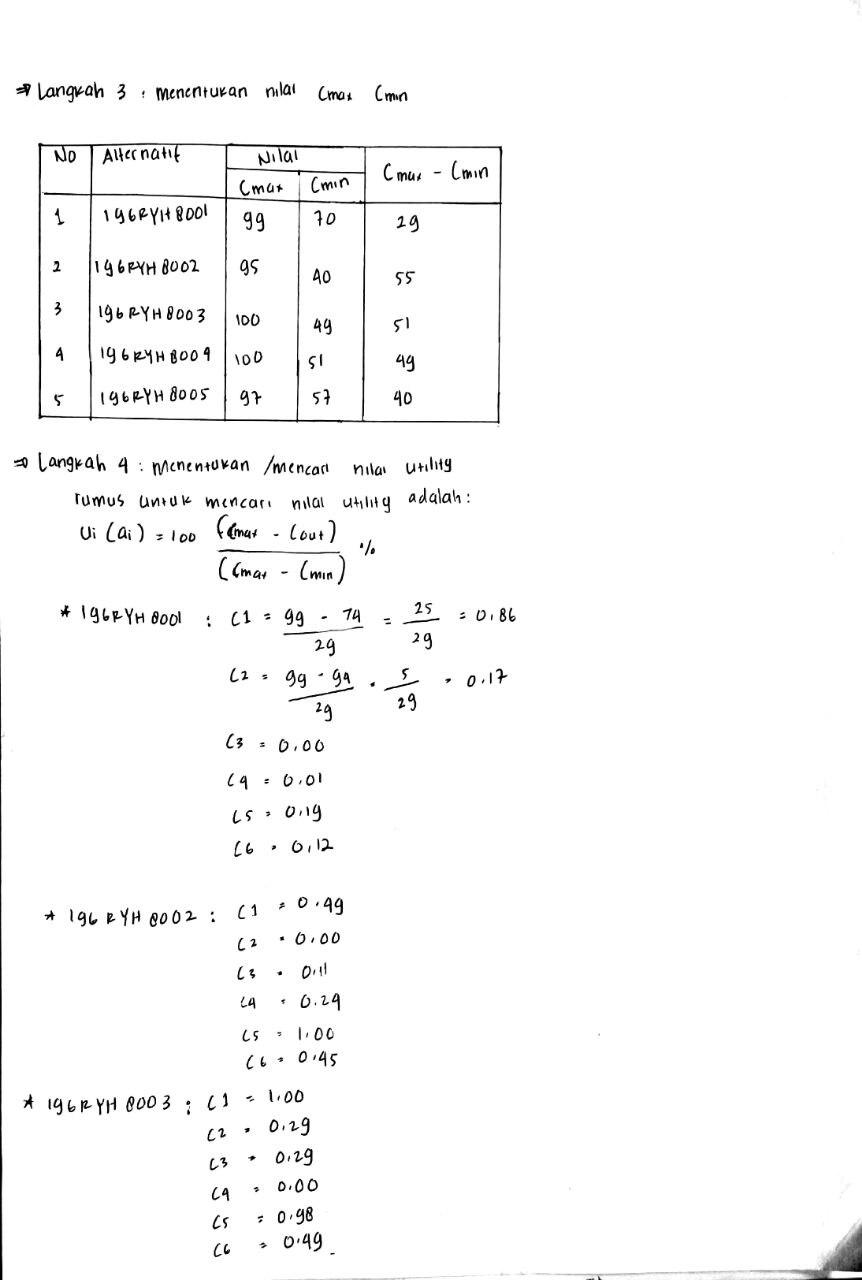 ⇒ Langkah 3 : menentukan nilai Cmax Cmin
No Alternatif Nilai Cmax - Cmin
Cmax Cmin
1 196RYH8001 99 70 29
2 196RYH8002 95 40 55
3 196RYH8003 100 49 51
4 196RYH8004 100 51 49
5 196RYH8005 97 57 40
⇒ Langkah 4 : Menentukan /mencari nilai utility
rumus untuk mencari nilai utility adalah :
Ui (ai) = 100 (Cmax - Cout) / (Cmax - Cmin) %
* 196RYH8001 : C1 = 99 - 74 / 29 = 25 / 29 = 0,86
C2 = 99 - 94 / 29 = 5 / 29 = 0.17
C3 = 0,00
C4 = 0,01
C5 = 0,19
C6 = 0,12
* 196RYH8002 : C1 = 0.49
C2 = 0,00
C3 = 0,11
C4 = 0.24
C5 = 1,00
C6 = 0,45
* 196RYH8003 : C1 = 1,00
C2 = 0,29
C3 = 0,29
C4 = 0,00
C5 = 0,98
C6 = 0,49